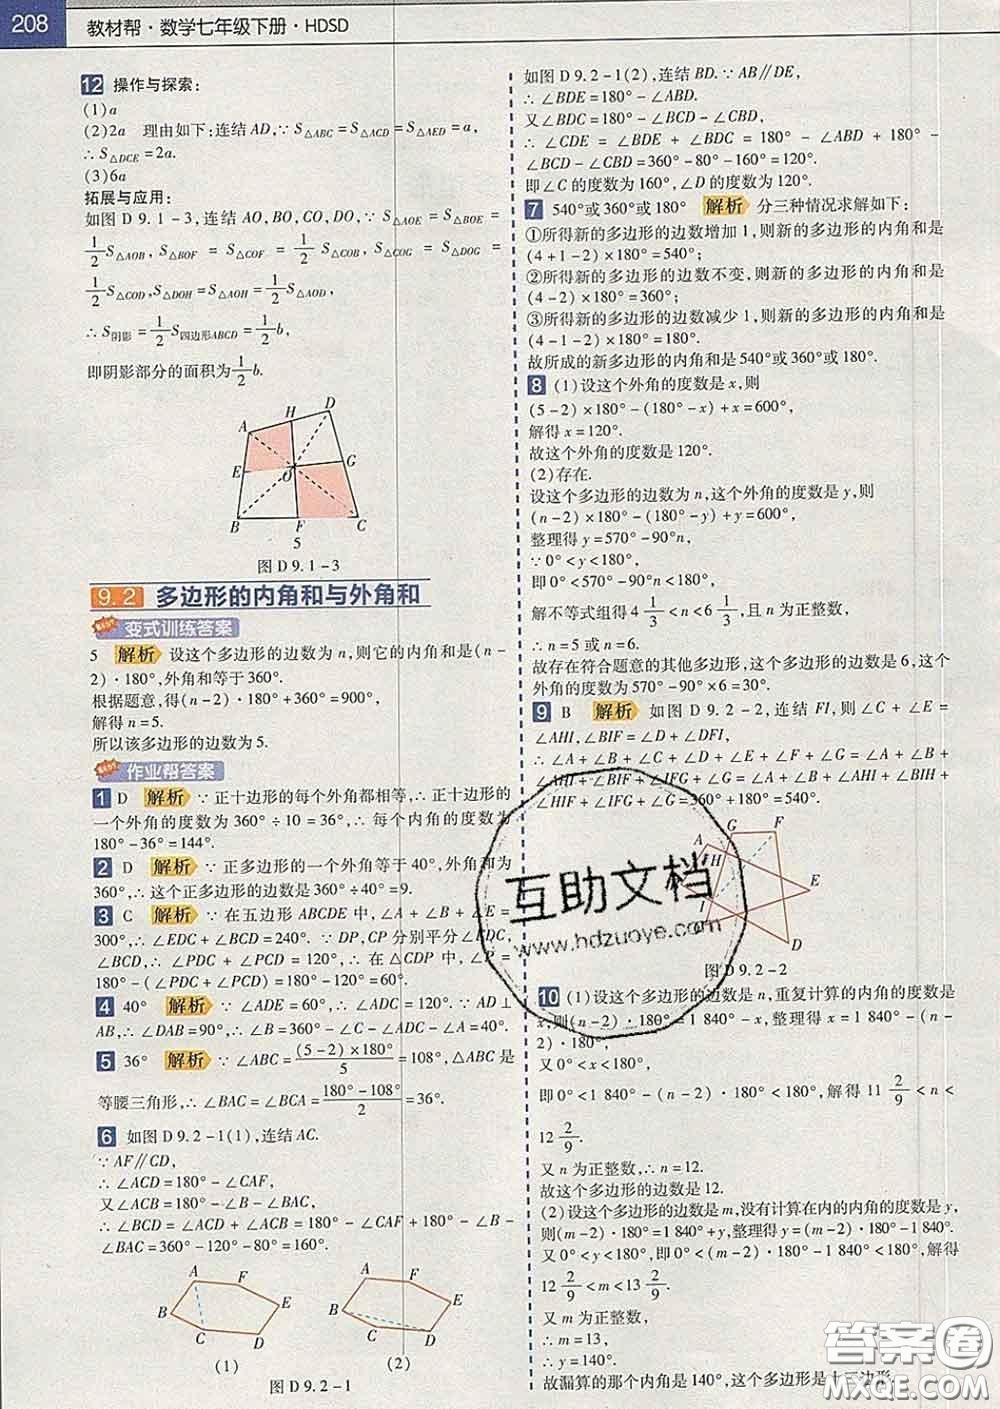 208 教材帮·数学七年级下册·HDSD
12 操作与探索:
(1)a
(2)2a 理由如下:连结AD,∵S△ABC=S△ACD=S△AED=a,
∴S△DCE=2a.
(3)6a
拓展与应用:
如图D9.1-3,连结AO,BO,CO,DO,∵S△AOE=S△BOE=
1/2S△AOB,S△BOF=S△COF=1/2S△COB,S△COG=S△DOG=
1/2S△COD,S△DOH=S△AOH=1/2S△AOD,
∴S阴影=1/2S四边形ABCD=1/2b,
即阴影部分的面积为1/2b.
H D
A
E O G
B F C
5
图D9.1-3
9.2 多边形的内角和与外角和
变式训练答案
5 解析 设这个多边形的边数为n,则它的内角和是(n-
2)·180°,外角和等于360°.
根据题意,得(n-2)·180°+360°=900°,
解得n=5.
所以该多边形的边数为5.
作业帮答案
1 D 解析 ∵正十边形的每个外角都相等,∴正十边形的
一个外角的度数为360°÷10=36°,∴每个内角的度数为
180°-36°=144°.
2 D 解析 ∵正多边形的一个外角等于40°,外角和为
360°,∴这个正多边形的边数是360°÷40°=9.
3 C 解析 ∵在五边形ABCDE中,∠A+∠B+∠E=
300°,∴∠EDC+∠BCD=240°.∵DP,CP分别平分∠EDC,
∠BCD,∴∠PDC+∠PCD=120°,∴在△CDP中,∠P=
180°-(∠PDC+∠PCD)=180°-120°=60°.
4 40° 解析 ∵∠ADE=60°,∴∠ADC=120°.∵AD⊥
AB,∴∠DAB=90°,∴∠B=360°-∠C-∠ADC-∠A=40°.
5 36° 解析 ∵∠ABC=(5-2)×180°/5=108°,△ABC是
等腰三角形,∴∠BAC=∠BCA=(180°-108°)/2=36°.
6 如图D9.2-1(1),连结AC.
∵AF∥CD,
∴∠ACD=180°-∠CAF,
又∠ACB=180°-∠B-∠BAC,
∴∠BCD=∠ACD+∠ACB=180°-∠CAF+180°-∠B-
∠BAC=360°-120°-80°=160°.
A F E D C B
(1)
A F E D C B
(2)
图D9.2-1
如图D9.2-1(2),连结BD.∵AB∥DE,
∴∠BDE=180°-∠ABD.
又∠BDC=180°-∠BCD-∠CBD,
∴∠CDE=∠BDE+∠BDC=180°-∠ABD+180°-
∠BCD-∠CBD=360°-80°-160°=120°.
即∠C的度数为160°,∠D的度数为120°.
7 540°或360°或180° 解析 分三种情况求解如下:
①所得新的多边形的边数增加1,则新的多边形的内角和是
(4+1-2)×180°=540°;
②所得新的多边形的边数不变,则新的多边形的内角和是
(4-2)×180°=360°;
③所得新的多边形的边数减少1,则新的多边形的内角和是
(4-1-2)×180°=180°.
故所成的新多边形的内角和是540°或360°或180°.
8 (1)设这个外角的度数是x,则
(5-2)×180°-(180°-x)+x=600°,
解得x=120°.
故这个外角的度数是120°.
(2)存在.
设这个多边形的边数为n,这个外角的度数是y,则
(n-2)×180°-(180°-y)+y=600°,
整理得y=570°-90°n,
∵0°<y<180°,
即0°<570°-90°n<180°,
解不等式组得4 1/3<n<6 1/3,且n为正整数,
∴n=5或n=6.
故存在符合题意的其他多边形,这个多边形的边数是6,这个
外角的度数为570°-90°×6=30°.
9 B 解析 如图D9.2-2,连结FI,则∠C+∠E=
∠AHI,∠BIF=∠D+∠DFI,
∴∠A+∠B+∠C+∠D+∠E+∠F+∠G=∠A+∠B+
∠AHI+∠BIF+∠IFG+∠G=∠A+∠B+∠AHI+∠BIH+
∠HIF+∠IFG+∠G=360°+180°=540°.
G F
A
H
E
I
D
图D9.2-2
10 (1)设这个多边形的边数是n,重复计算的内角的度数是
x,则(n-2)·180°=1 840°-x,整理得x=1 840°-(n-
2)·180°.
又0°<x<180°,
即0°<1 840°-(n-2)·180°<180°,解得11 2/9<n<
12 2/9.
又n为正整数,∴n=12.
故这个多边形的边数是12.
(2)设这个多边形的边数是m,没有计算在内的内角的度数是y,
则(m-2)·180°=1 840°+y,整理得y=(m-2)·180°-1 840°.
又0°<y<180°,即0°<(m-2)·180°-1 840°<180°,解得
12 2/9<m<13 2/9.
又m为正整数,
∴m=13,
∴y=140°.
故漏算的那个内角是140°,这个多边形是十三边形.
互助文档
www.hdzuoye.com
答案圈
MXQE.COM